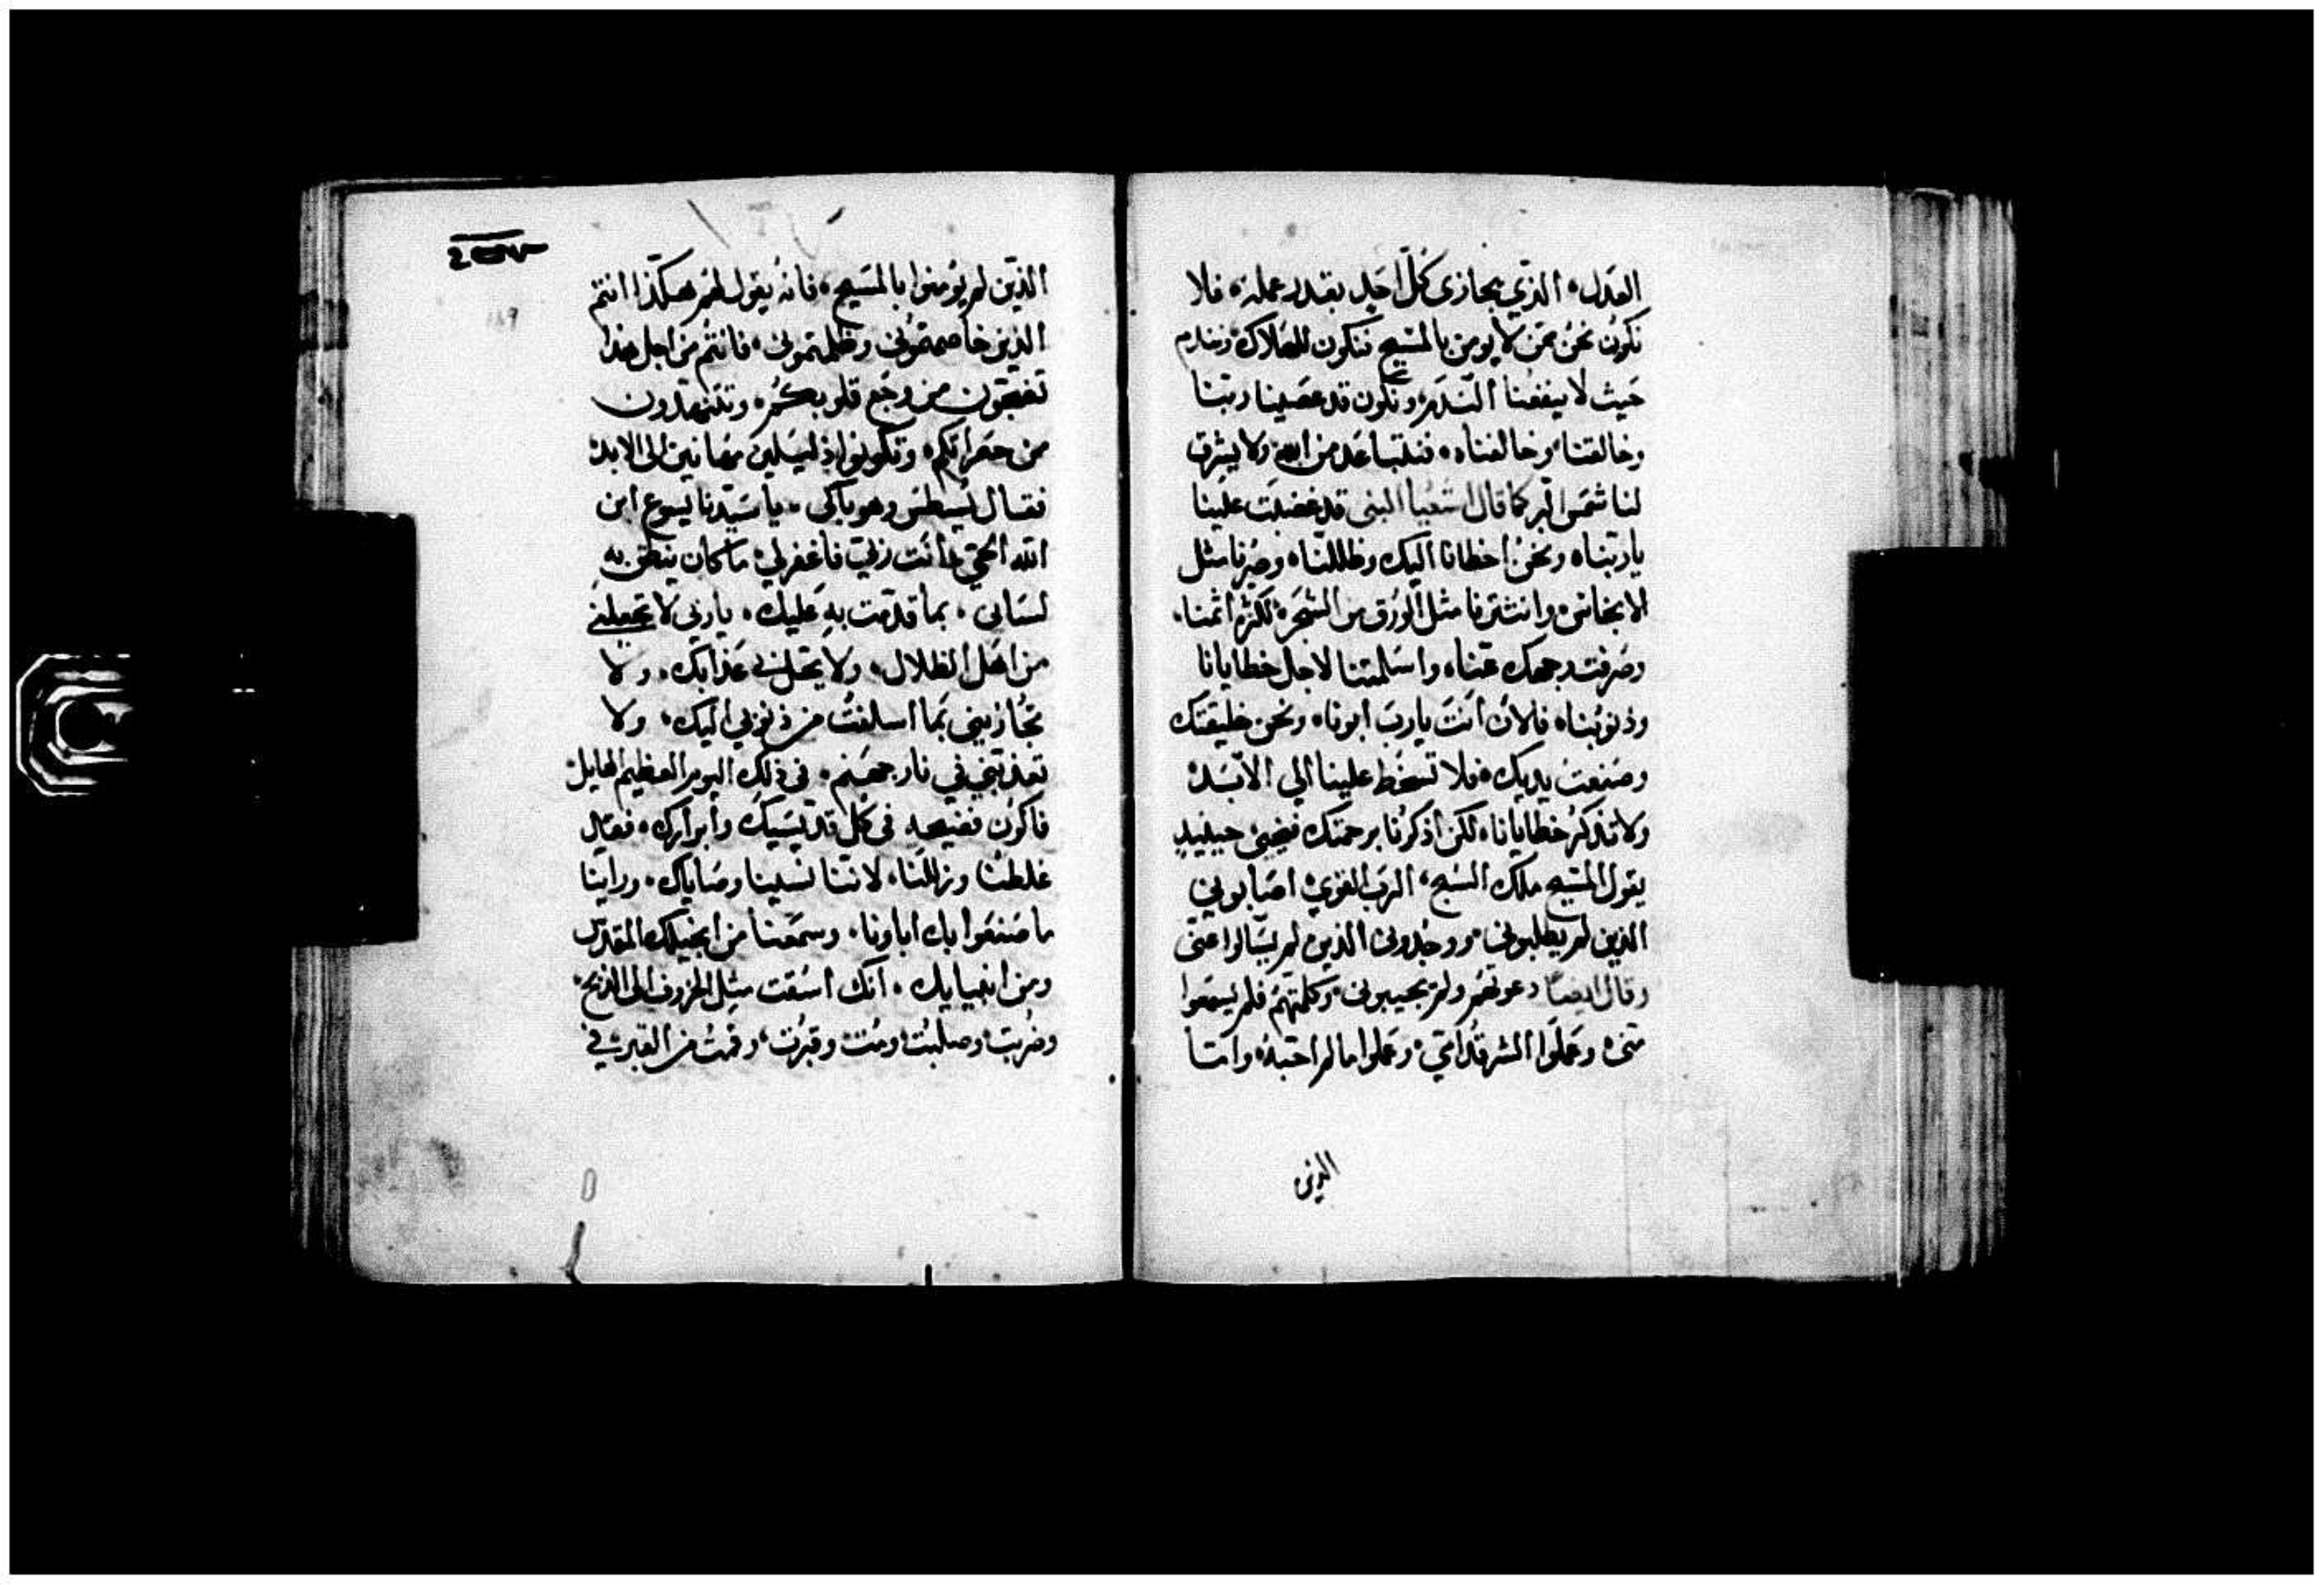 العدل، الذي يجازى كل احد بقدر عمله، فلا
نكون نحن ممن لا يومن بالمسيح فنكون للهلاك ونندم
حيث لا ينفعنا الندم، ونكون قد عصينا ربنا
وخالقنا وخالفناه، فنتباعد من الله ولا يشرق
لنا شمس البر كما قال اشعيا النبي قد غضبت علينا
ياربناه ونحن اخطانا اليك وظللنا وصرنا مثل
الانجاس، وانتثرنا مثل الورق من الشجرة لكثرة اثمنا،
وصرفت وجهك عنا، واسلمتنا لاجل خطايانا
وذنوبنا، فالان انت يارب ابونا، ونحن خليقتك
وصنعت يديك، فلا تسخط علينا الي الابد،
ولا تذكر خطايانا، لكن اذكرنا برحمتك فيجيئ حينيد
يقول المسيح ملك السبح، الرب القوي، اصابوني
الذين لم يطلبوني، ووجدوني الذين لم يسالوا عني
وقال ايضا دعوتهم ولم يجيبوني، وكلمتهم فلم يسمعوا
مني، وعملوا الشر قدامي، وعملوا ما لم احبه، واما
الذين
الذين لم يومنوا بالمسيح، فانه يقول لهم هكذا انتم
الذين خاصمتموني وظلمتموني، فانتم من اجل هذا
تضجون من وجع قلوبكم، وتتنهدون
من حسراتكم، وتكونوا ذليلين مهانين الى الابد،
فقال يسطس وهو باكي، يا سيدنا يسوع ابن
الله الحي انت ربي فاغفر لي ما كان ينطق به
لساني، بما قدمت به عليك، يا ربى لا تجعلني
من اهل الظلال، ولا تحل بي عذابك، ولا
تجازيني بما اسلفت من ذنوبي اليك، ولا
تعذبني في نار جهنم، فى ذلك اليوم العظيم الهايل،
فاكون فضيحه فى كل قديسيك وابرارك، فقال
غلطنا وزللنا، لاننا نسينا وصاياك، وراينا
ما صنعوا بك اباونا، وسمعنا من انجيلك المقدس
ومن انبيايك، انك اسقت مثل الخروف الى الذبح،
وضربت، وصلبت، ومت، وقبرت، وقمت من القبر، في